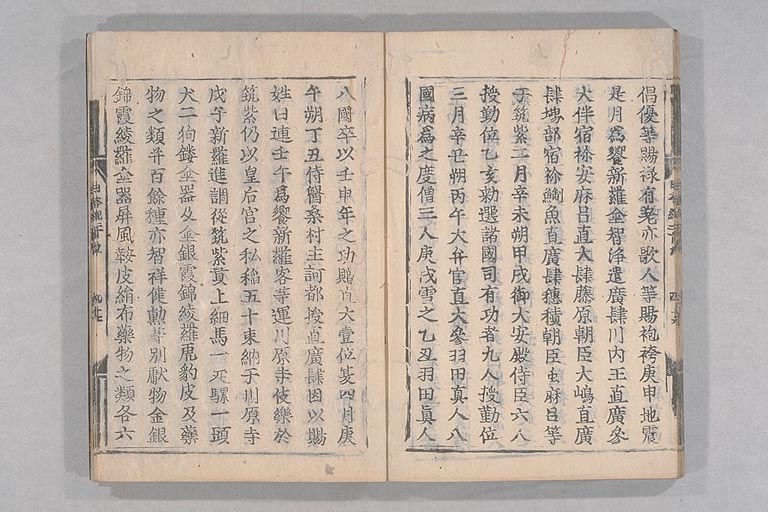 倡優等賜禄有差亦歌人等賜袍袴庚申地震
是月為饗新羅金智淨遣廣肆川内王直廣參
大伴宿祢安麻呂直大肆藤原朝臣大嶋直廣
肆境部宿祢鯯魚直廣肆穗積朝臣虫麻呂等
于筑紫二月辛未朔甲戌御大安殿侍臣六人
授勤位乙亥勅選諸國司有功者九人授勤位
三月辛丑朔丙午大弁官直大參羽田真人八
國病為之度僧三人庚戌雪之乙丑羽田真人
八國卒以壬申年之功贈直大壹位夏四月庚
午朔丁丑侍醫桑村主訶都授直廣肆因以賜
姓曰連壬午為饗新羅客等運川原寺伎樂於
筑紫仍以皇后宮之私稲五千束納于川原寺
戊子新羅進調從筑紫貢上細馬一疋騾一頭
犬二狗鏤金器及金銀霞錦綾羅虎豹皮及藥
物之類并百餘種亦智祥健勳等別獻物金銀
錦霞綾羅金器屏風鞍皮絹布藥物之類各六